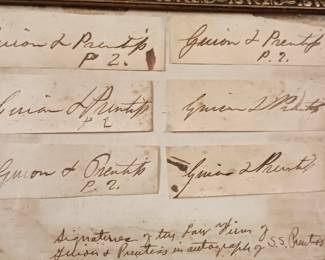 Guion & Prentiss
P. 2.
Guion & Prentiss
P. 2.
Guion & Prentiss
P 2
Guion & Prentiss
Guion & Prentiss
P. 2.
Guion & Prentiss
Signatures of the Law Firm of
Guion & Prentiss in autograph of S.S. Prentiss